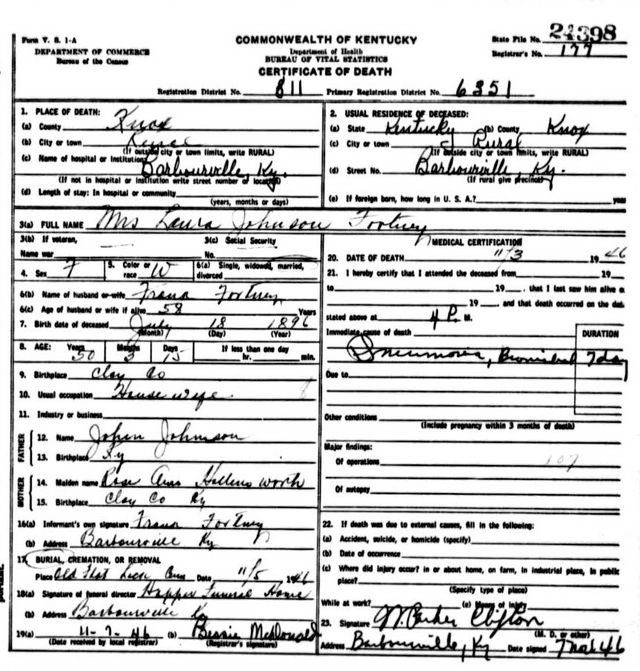 Form V. S. 1-A
DEPARTMENT OF COMMERCE
Bureau of the Census
COMMONWEALTH OF KENTUCKY
Department of Health
BUREAU OF VITAL STATISTICS
CERTIFICATE OF DEATH
State File No. 24398
Registrar's No. 177
Registration District No. 811 Primary Registration District No. 6351
1. PLACE OF DEATH:
(a) County Knox
(b) City or town Rural
(If outside city or town limits, write RURAL)
(c) Name of hospital or institution: Barbourville, Ky.
(If not in hospital or institution write street number or location)
(d) Length of stay: In hospital or community
(years, months or days)
2. USUAL RESIDENCE OF DECEASED:
(a) State Kentucky (b) County Knox
(c) City or town Rural
(If outside city or town limits, write RURAL)
(d) Street No. Barbourville, Ky.
(If rural give precinct)
(e) If foreign born, how long in U. S. A.? years
3(a) FULL NAME Mrs Laura Johnson Fortney
3(b) If veteran,
Name war
3(c) Social Security
No.
4. Sex F
5. Color or race W
6(a) Single, widowed, married, divorced
6(b) Name of husband or wife Frank Fortney
6(c) Age of husband or wife if alive 58 Years
7. Birth date of deceased July 18 1896
(Month) (Day) (Year)
8. AGE: Years 50 Months 3 Days 15 If less than one day
hr. min.
9. Birthplace Clay Co
10. Usual occupation House wife
11. Industry or business
FATHER
12. Name John Johnson
13. Birthplace Ky
MOTHER
14. Maiden name Rose Ann Hollinsworth
15. Birthplace Clay Co Ky
16(a) Informant's own signature Frank Fortney
(b) Address Barbourville Ky
17. BURIAL, CREMATION, OR REMOVAL
Place Old Flat Lick Cem Date 11/5 1946
18(a) Signature of funeral director Hopper Funeral Home
(b) Address Barbourville Ky
19(a) 11-7-46 (b) Bessie McDonald
(Date received by local registrar) (Registrar's signature)
MEDICAL CERTIFICATION
20. DATE OF DEATH 11/3 1946
21. I hereby certify that I attended the deceased from 19
to 19 , that I last saw him alive on
19 , and that death occurred on the date
stated above at 4 P. M.
Immediate cause of death DURATION
Pneumonia, Bronchial 7 day
Due to
Other conditions
(Include pregnancy within 3 months of death)
Major findings:
Of operations 107
Of autopsy
22. If death was due to external causes, fill in the following:
(a) Accident, suicide, or homicide (specify)
(b) Date of occurrence
(c) Where did injury occur? in or about home, on farm, in industrial place, in public
place?
(Specify type of place)
While at work? (e) Means of injury
23. Signature Parker Clifton
(M. D. or other)
Address Barbourville, Ky Date signed 7 46